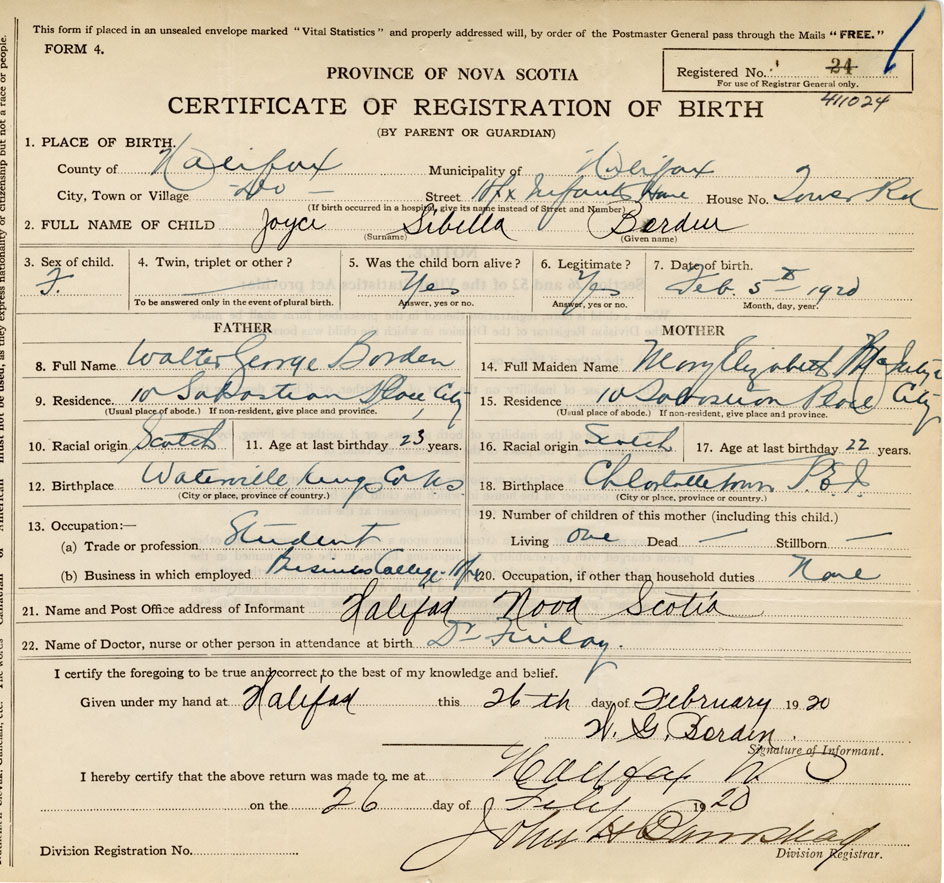 This form if placed in an unsealed envelope marked "Vital Statistics" and properly addressed will, by order of the Postmaster General pass through the Mails "FREE."
FORM 4.
PROVINCE OF NOVA SCOTIA
Registered No. 24
For use of Registrar General only.
411024
CERTIFICATE OF REGISTRATION OF BIRTH
(BY PARENT OR GUARDIAN)
1. PLACE OF BIRTH.
County of Halifax Municipality of Halifax
City, Town or Village Do — Street Hfx Infants Home House No. Tower Rd
(If birth occurred in a hospital, give its name instead of Street and Number)
2. FULL NAME OF CHILD Joyce Sibella Borden
(Surname) (Given name)
3. Sex of child. F. 4. Twin, triplet or other? 5. Was the child born alive? Yes 6. Legitimate? Yes 7. Date of birth. Feb. 5th 1920
To be answered only in the event of plural birth. Answer, yes or no. Answer, yes or no. Month, day, year.
FATHER MOTHER
8. Full Name Walter George Borden 14. Full Maiden Name Mary Elizabeth
9. Residence. 10 Sabastian Place City 15. Residence 10 Sabastion Place City
(Usual place of abode.) If non-resident, give place and province. (Usual place of abode.) If non-resident, give place and province.
10. Racial origin Scotch 11. Age at last birthday 23 years. 16. Racial origin Scotch 17. Age at last birthday 22 years.
12. Birthplace Waterville, Kings Co NS 18. Birthplace Charlottetown P.E.I.
(City or place, province or country.) (City or place, province or country.)
13. Occupation:— 19. Number of children of this mother (including this child.)
(a) Trade or profession Student Living one Dead — Stillborn —
(b) Business in which employed Business College Hfx 20. Occupation, if other than household duties None
21. Name and Post Office address of Informant Halifax Nova Scotia
22. Name of Doctor, nurse or other person in attendance at birth Dr Finlay.
I certify the foregoing to be true and correct to the best of my knowledge and belief.
Given under my hand at Halifax this 26th day of February 1920
W. G. Borden.
Signature of Informant.
I hereby certify that the above return was made to me at Halifax
on the 26 day of Feby 1920
John H
Division Registration No. Division Registrar.